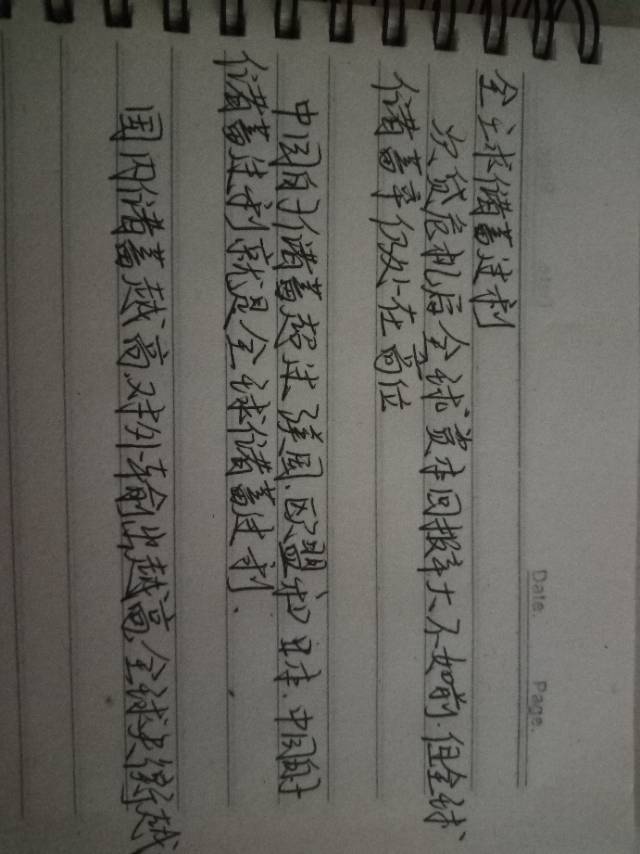 Date.    Page.
全球储蓄过剩
次贷危机后全球资本回报率大不如前.但全球
储蓄率仍处在高位
中国的储蓄超过美国.欧盟和日本.中国的
储蓄过剩就是全球储蓄过剩.
国内储蓄越高.对外输出越高.全球失衡越